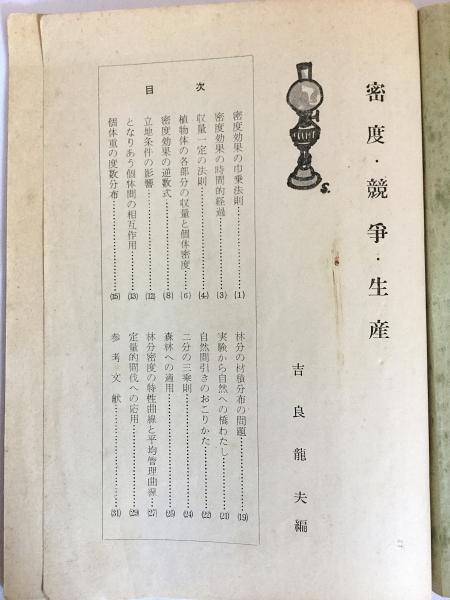 密度・競争・生産
吉良龍夫編
S.
目次
密度効果の巾乗法則………(1)
密度効果の時間的経過………(3)
収量一定の法則………(4)
植物体の各部分の収量と個体密度………(6)
密度効果の逆数式………(8)
立地条件の影響………(12)
となりあう個体間の相互作用………(13)
個体重の度数分布………(15)
林分の材積分布の問題………(19)
実験から自然への橋わたし………(21)
自然間引きのおこりかた………(22)
二分の三乗則………(24)
森林への適用………(25)
林分密度の特性曲線と平均管理曲線………(27)
定量的間伐への応用………(29)
参考文献………(31)